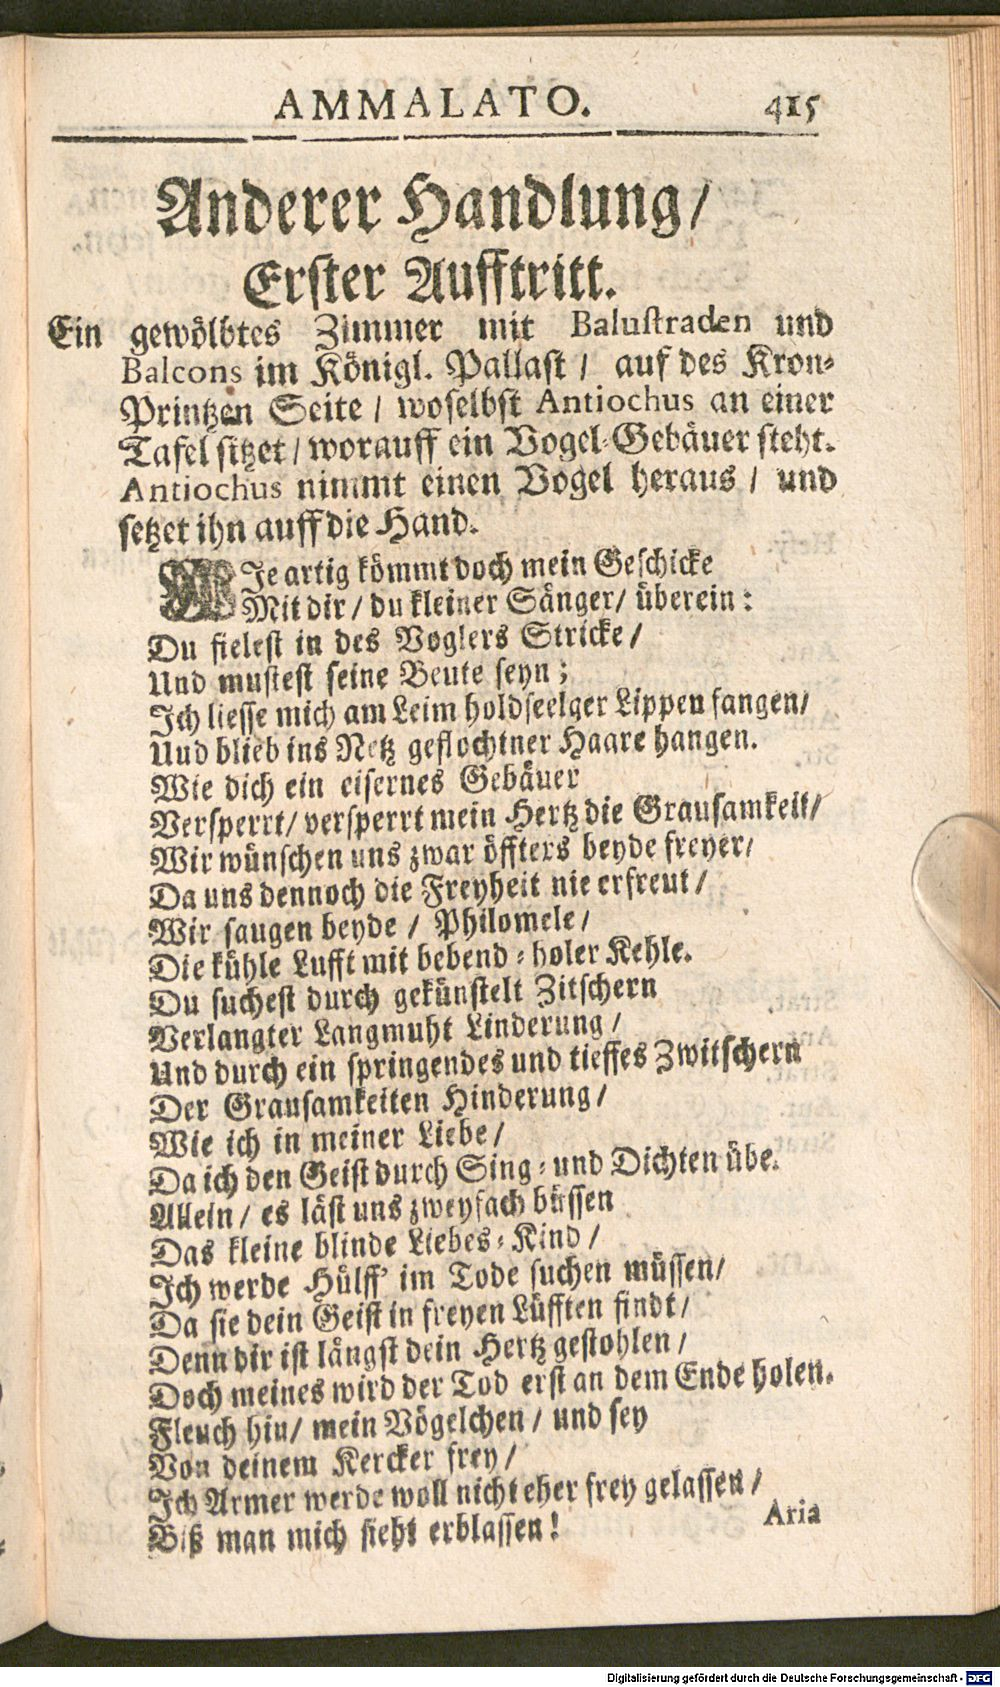 AMMALATO. 415
Anderer Handlung/
Erster Aufftritt.
Ein gewölbtes Zimmer mit Balustraden und
Balcons im Königl. Pallast / auf des Kron-
Printzen Seite / woselbst Antiochus an einer
Tafel sitzet / worauff ein Vogel-Gebäuer steht.
Antiochus nimmt einen Vogel heraus / und
setzet ihn auff die Hand.
WJe artig kömmt doch mein Geschicke
Mit dir / du kleiner Sänger / überein:
Du fielest in des Voglers Stricke /
Und mustest seine Beute seyn;
Ich liesse mich am Leim holdseelger Lippen fangen/
Uud blieb ins Netz geflochtner Haare hangen.
Wie dich ein eisernes Gebäuer
Versperrt/ versperrt mein Hertz die Grausamkeit/
Wir wünschen uns zwar öffters beyde freyer/
Da uns dennoch die Freyheit nie erfreut /
Wir saugen beyde / Philomele /
Die kühle Lufft mit bebend-holer Kehle.
Du suchest durch gekünstelt Zitschern
Verlangter Langmuht Linderung /
Und durch ein springendes und tieffes Zwitschern
Der Grausamkeiten Hinderung /
Wie ich in meiner Liebe /
Da ich den Geist durch Sing- und Dichten übe.
Allein / es läst uns zweyfach büssen
Das kleine blinde Liebes-Kind /
Ich werde Hülff' im Tode suchen müssen/
Da sie dein Geist in freyen Lüfften findt /
Denn dir ist längst dein Hertz gestohlen /
Doch meines wird der Tod erst an dem Ende holen.
Fleuch hin/ mein Vögelchen / und sey
Von deinem Kercker frey /
Ich Armer werde woll nicht eher frey gelassen /
Biß man mich sieht erblassen!
Aria
Digitalisierung gefördert durch die Deutsche Forschungsgemeinschaft - DFG